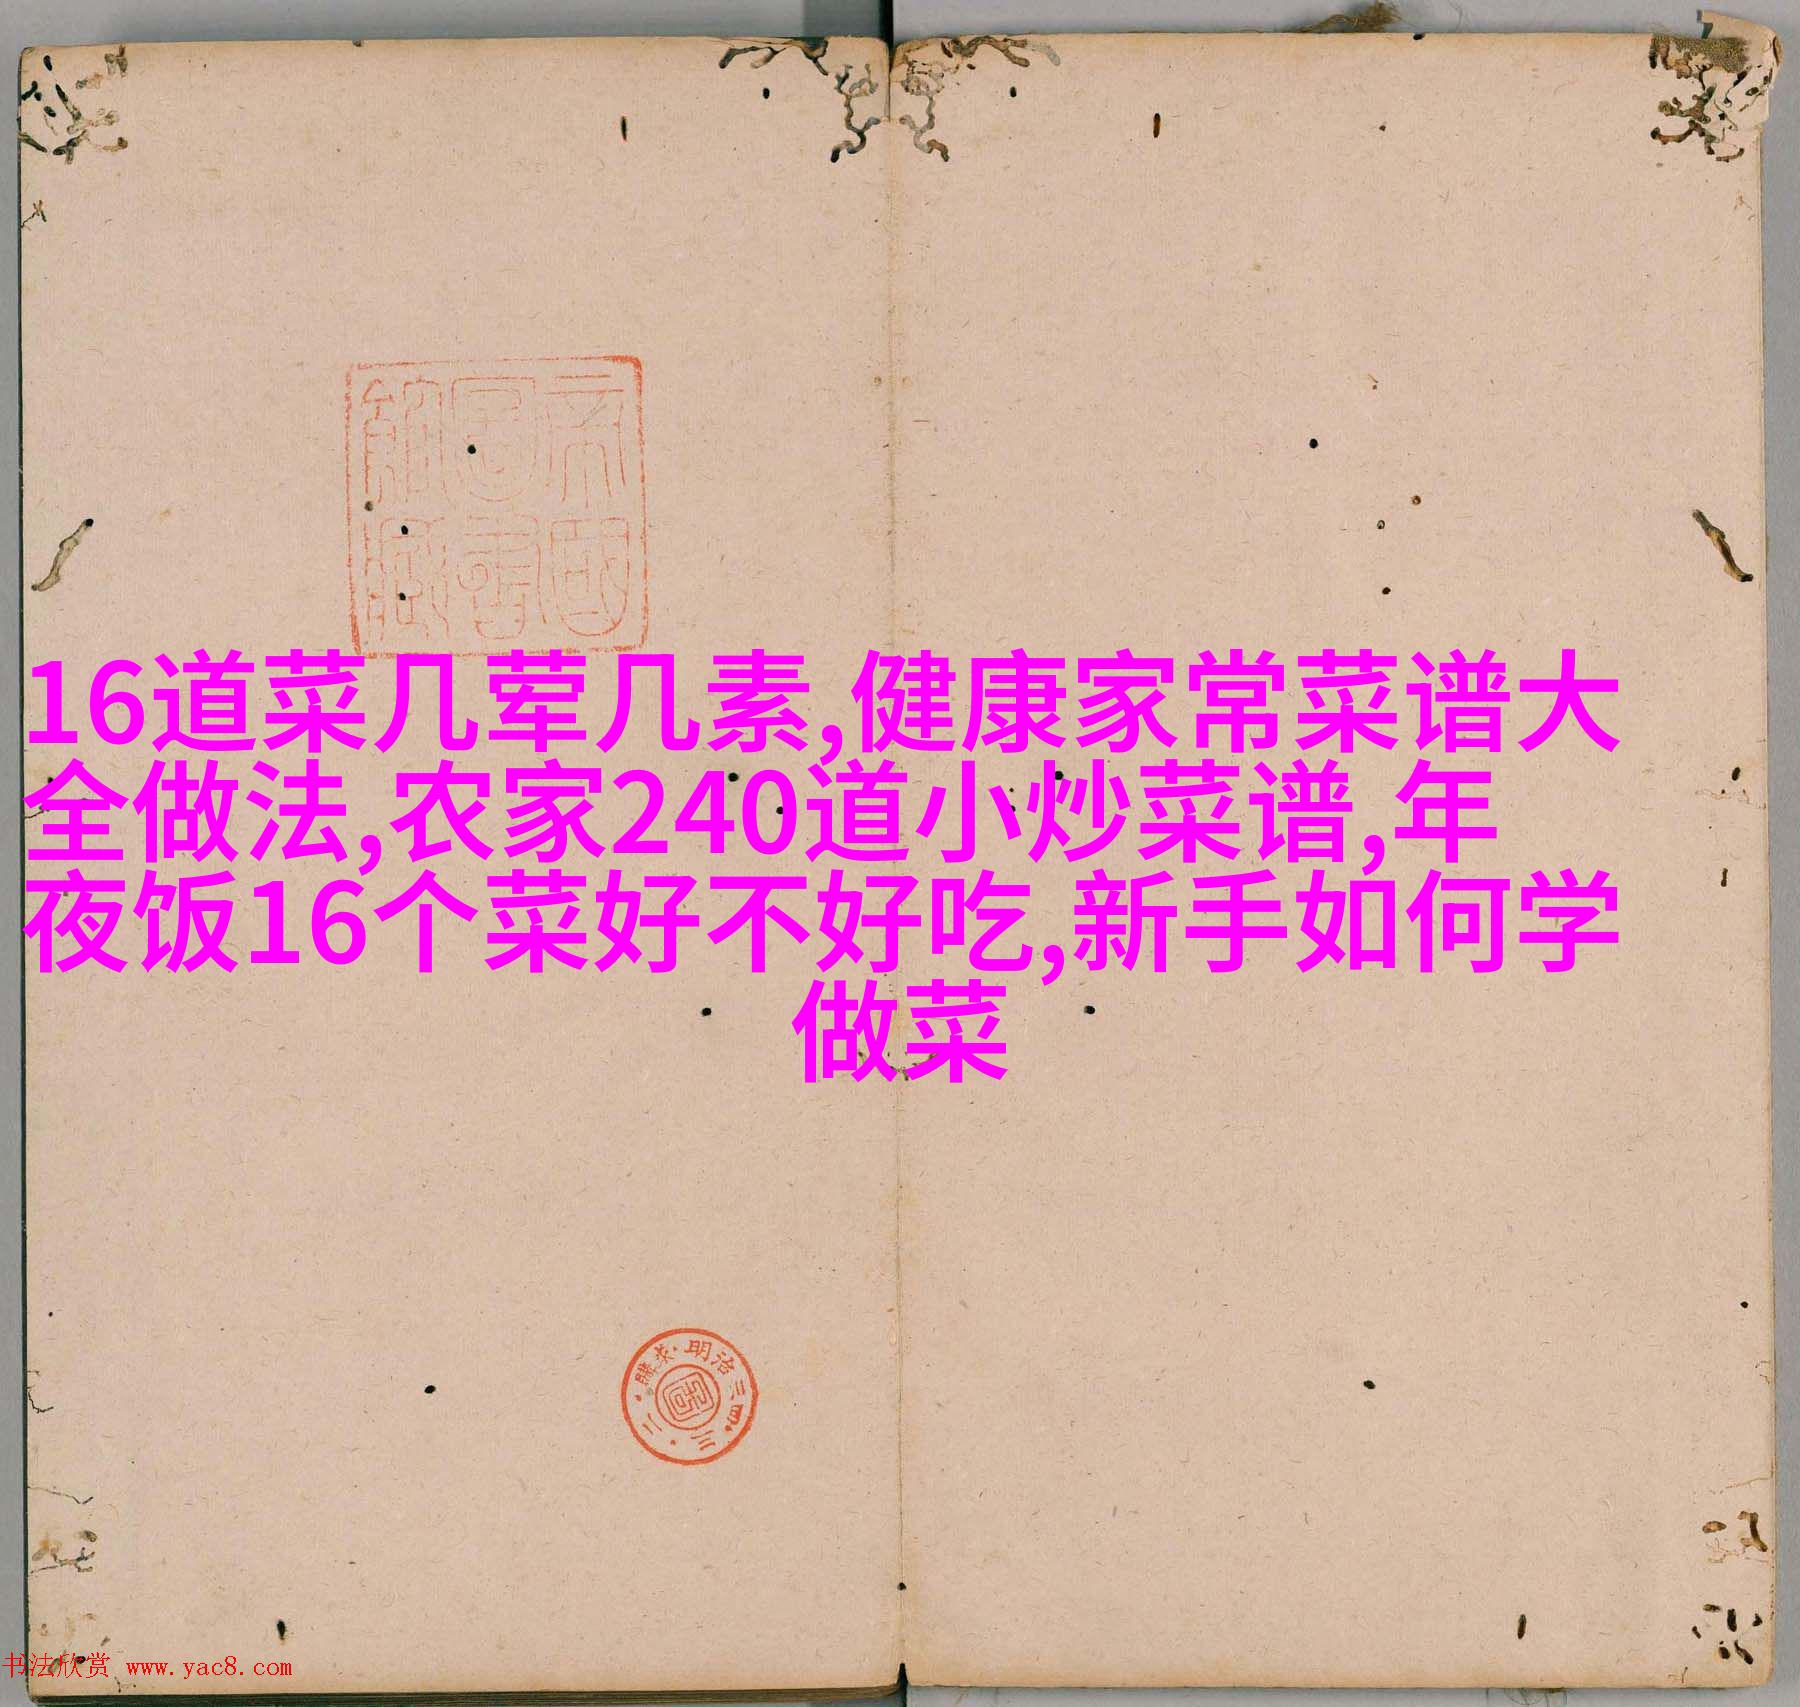 帝国
图書
館藏
16道菜几荤几素,健康家常菜谱大
全做法,农家240道小炒菜谱,年
夜饭16个菜好不好吃,新手如何学
做菜
明治三四·三·二·購求·
书法欣赏 www.yac8.com